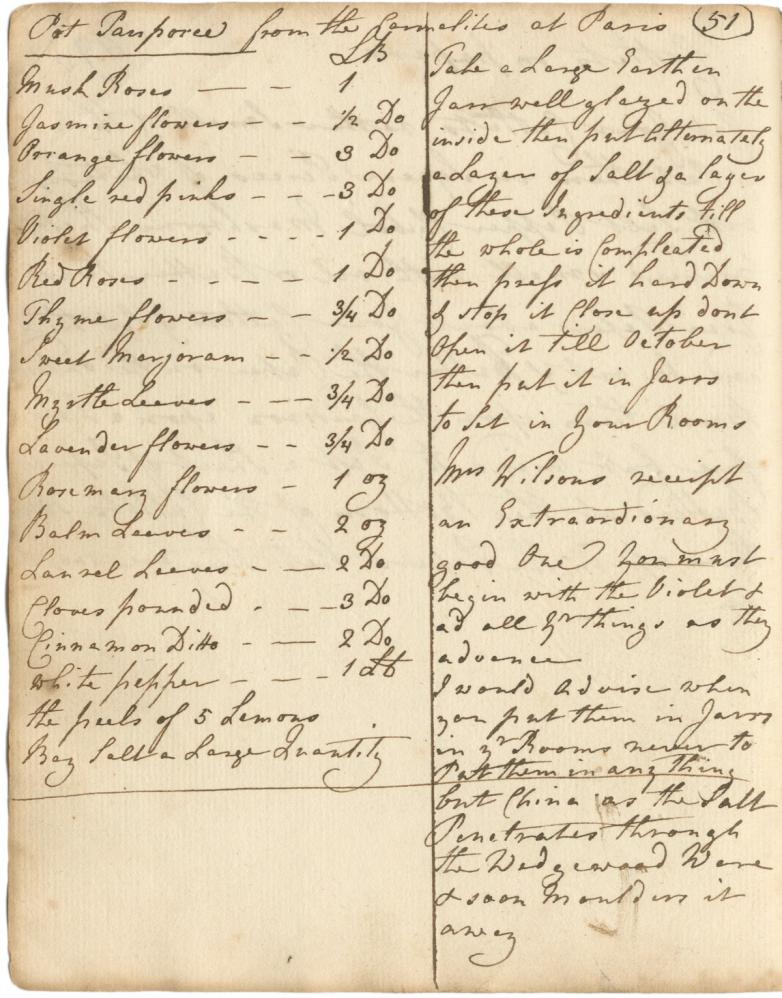 Pot Parporee from the Carmelites at Paris (51)
LB
Musk Roses — - 1
Jasmine flowers - - 1/2 Do
Orrange flowers - - 3 Do
Single red pinks - - - 3 Do
Violet flowers - - - - 1 Do
Red Roses - - - - 1 Do
Thyme flowers - - 3/4 Do
Sweet Marjoram - - 1/2 Do
Myrtle Leeves - — 3/4 Do
Lavender flowers - - 3/4 Do
Rosemary flowers - 1 oz
Balm Leeves - - 2 oz
Laurel Leeves - — 2 Do
Cloves pounded - — 3 Do
Cinnamon Ditto - — 2 Do
white pepper - — - 1 Lb
the peels of 5 Lemons
Bay Salt a Large Quantity
Take a Large Earthen
Jarr well glazed on the
inside then put Alternately
a Layer of Salt & a layer
of these Ingredients till
the whole is Compleated
then press it hard Down
& stop it Close up dont
Open it till October
then put it in Jarrs
to Set in your Rooms
Mrs Wilsons receipt
an Extraordionary
good One you must
begin with the Violet &
ad all yr things as they
advance
I would advise when
you put them in Jarrs
in yr Rooms never to
Putt them in any thing
but China as the Salt
Penetrates through
the Wedgewood Ware
& soon Moulders it
away